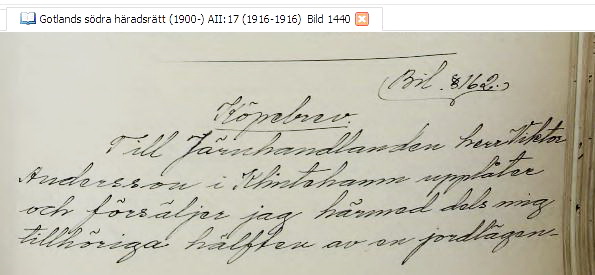 Gotlands södra häradsrätt (1900-) AII:17 (1916-1916) Bild 1440
(Bil. § 162.)
Köpebrev.
Till Järnhandlanden herr Viktor
Andersson i Klintehamn upplåter
och försäljer jag härmed dels mig
tillhöriga hälften av en jordlägen-